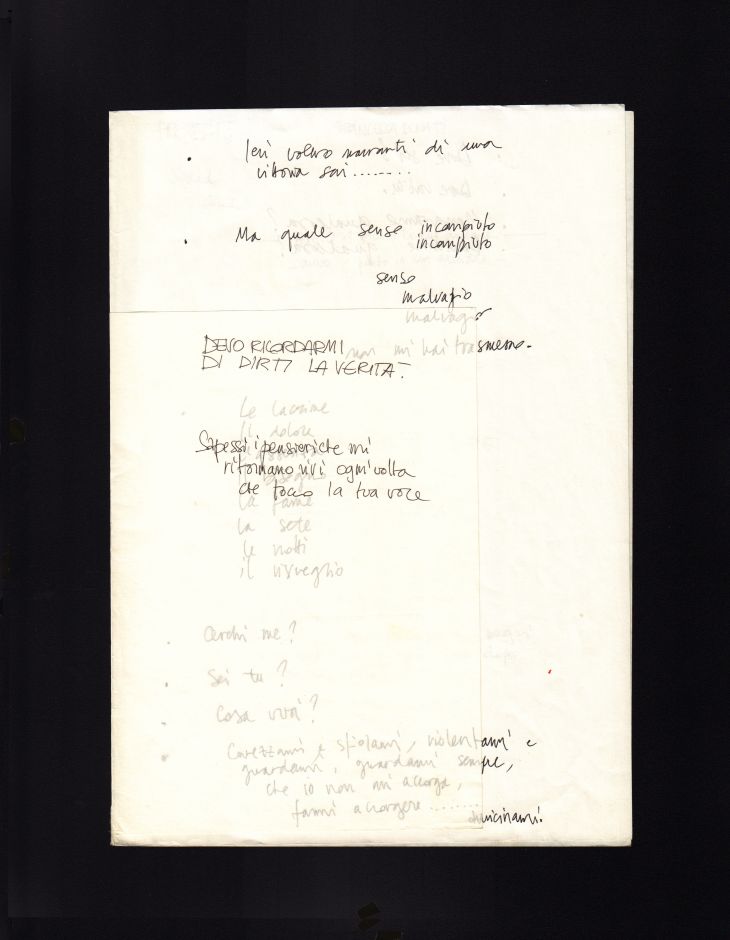 • Ieri volevo narrarti di una
vittoria sai........
• Ma quale senso incompiuto
incompiuto
senso
malvagio
malvagio
DEVO RICORDARMI
DI DIRTI LA VERITÀ.
non mi hai trasmesso.
• Le lacrime
Il dolore
Sapessi i pensieri che mi
ritornano vivi ogni volta
che tocco la tua voce
la fame
la sete
le notti
il risveglio
• Cerchi me?
• Sei tu?
• Cosa vuoi?
• Carezzami e sfiorami, violentami e
guardami, guardami sempre,
che io non mi accorga,
fammi accorgere........
avvicinami.